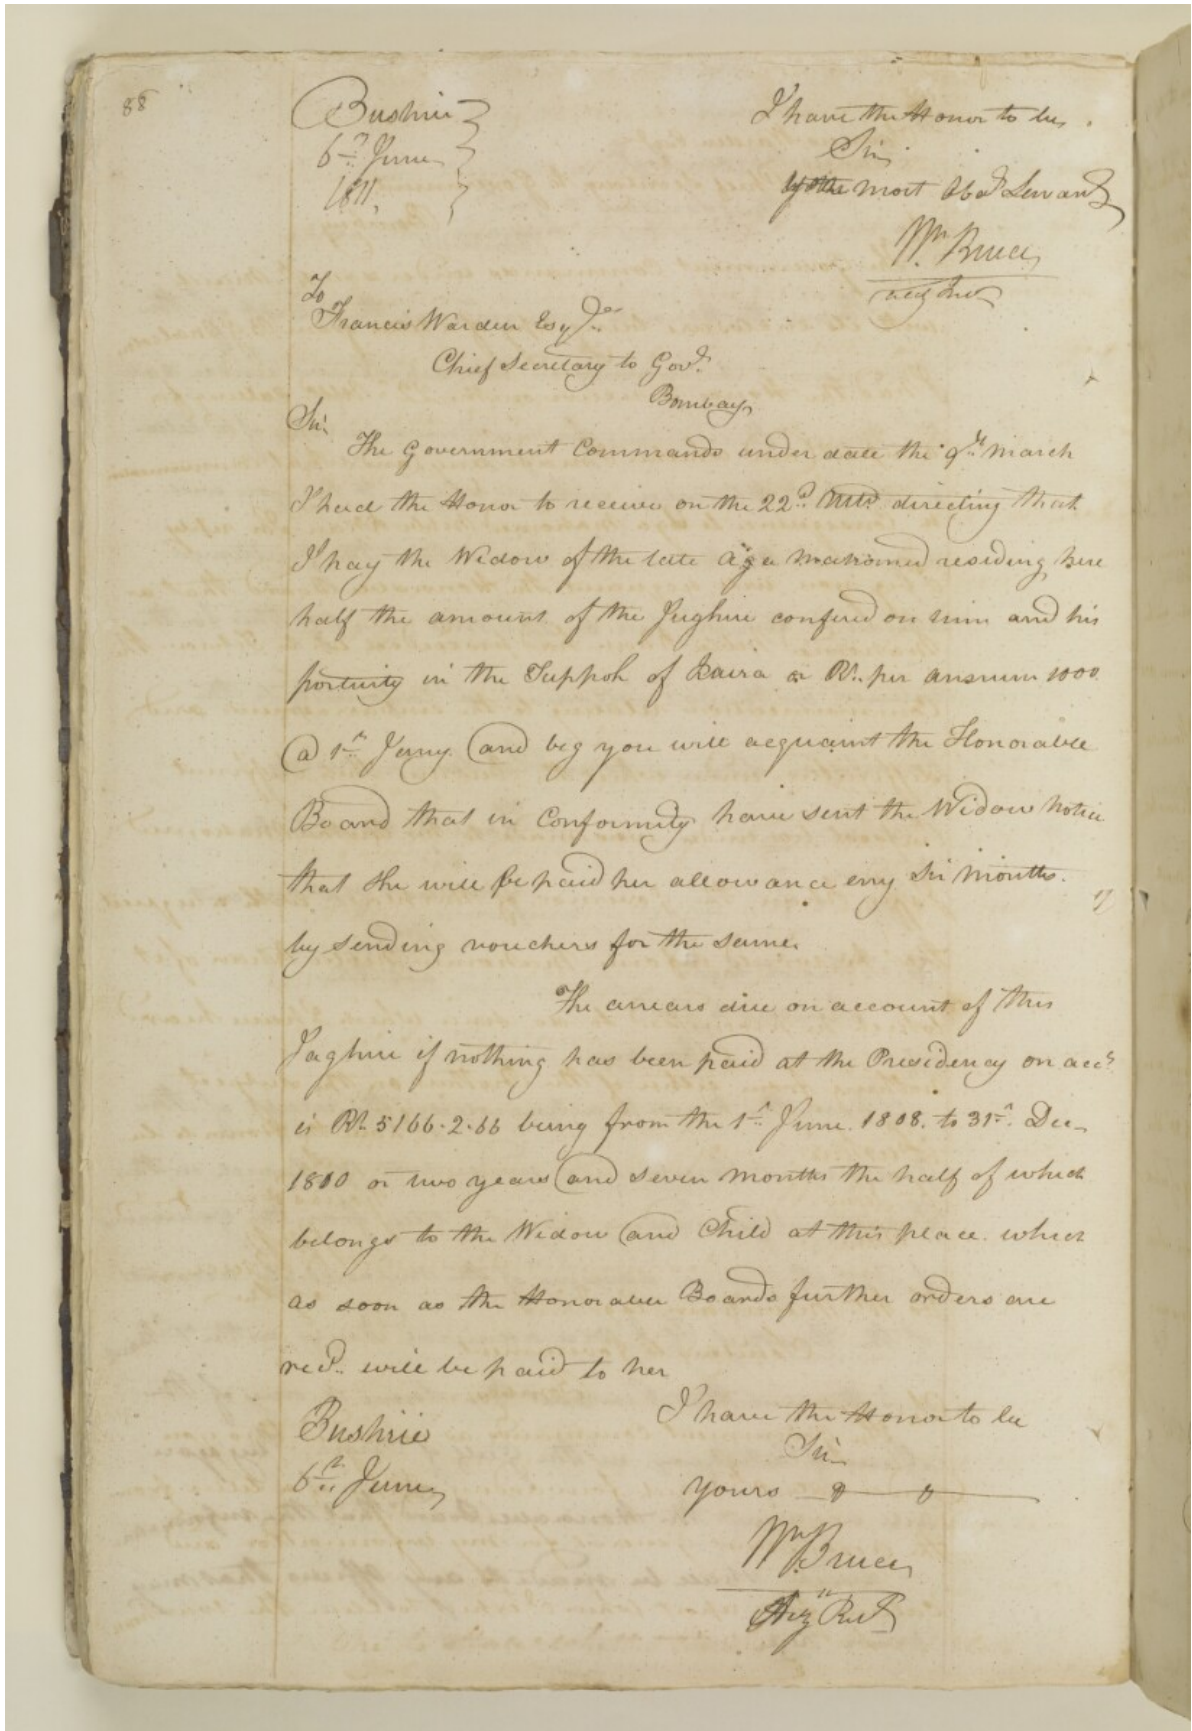 88
Bushire
6th June
1811.
I have the Honor to be,
Sir
most Obdt Servant
Wm Bruce
Actg Rest
To
Francis Warden Esqre
Chief Secretary to Govt
Bombay
Sir
The Government Commands under date the 9th March
I had the Honor to receive on the 22d Ulto directing that
I pay the Widow of the late Aga Mahomed residing here
half the amount of the Jaghire confered on him and his
in the Tuppoh of Kaira or Rs. per annum 1000
@ 1st Jany and beg you will acquaint the Honorable
Board that in Conformity have sent the Widow notice
that she will be paid her allowance every Six Months.
by sending vouchers for the same.
The arrears due on account of this
Jaghire if nothing has been paid at the Presidency on acct
is Rs. 5166.2.66 being from the 1st June 1808. to 31st. Dec
1810 or two years and seven months the half of which
belongs to the Widow and Child at this place. which
as soon as the Honorable Boards further orders are
recd. will be paid to her
Bushire
6th June
I have the Honor to be
Sir
Yours
Wm Bruce
Actg Rest